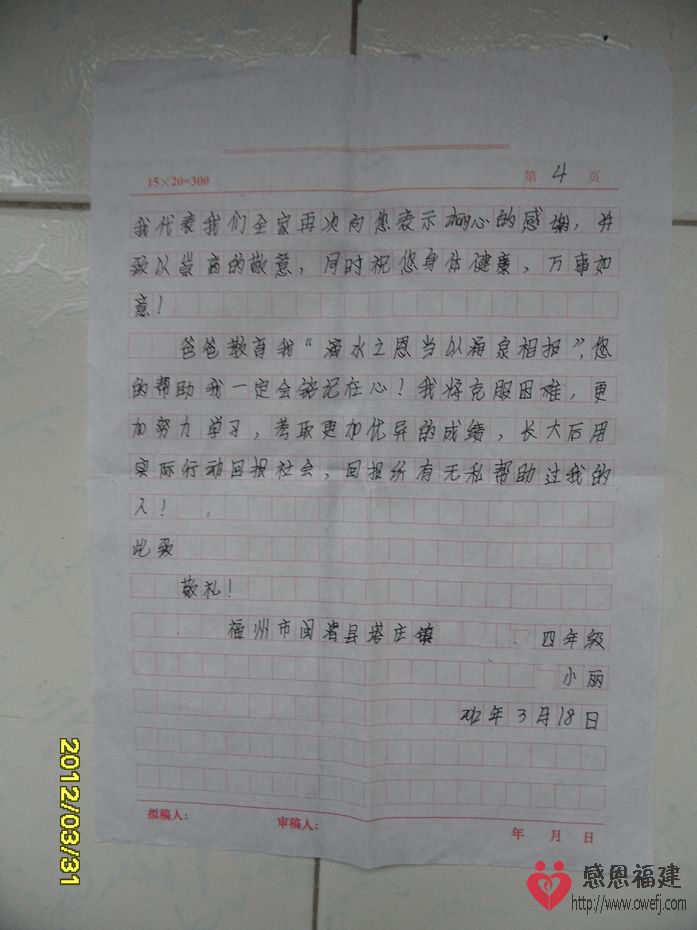 15×20=300
第 4 页
我代表我们全家再次向您表示衷心的感谢,并
致以崇高的敬意,同时祝您身体健康,万事如
意!
爸爸教育我“滴水之恩当以涌泉相报”,您
的帮助我一定会铭记在心!我将克服困难,更
加努力学习,考取更加优异的成绩,长大后用
实际行动回报社会,回报所有无私帮助过我的
人!
此致
敬礼!
福州市闽省县塔庄镇 四年级
小丽
2012年3月18日
拟稿人: 审稿人: 年 月 日
2012/03/31
感恩福建
http://www.owefj.com